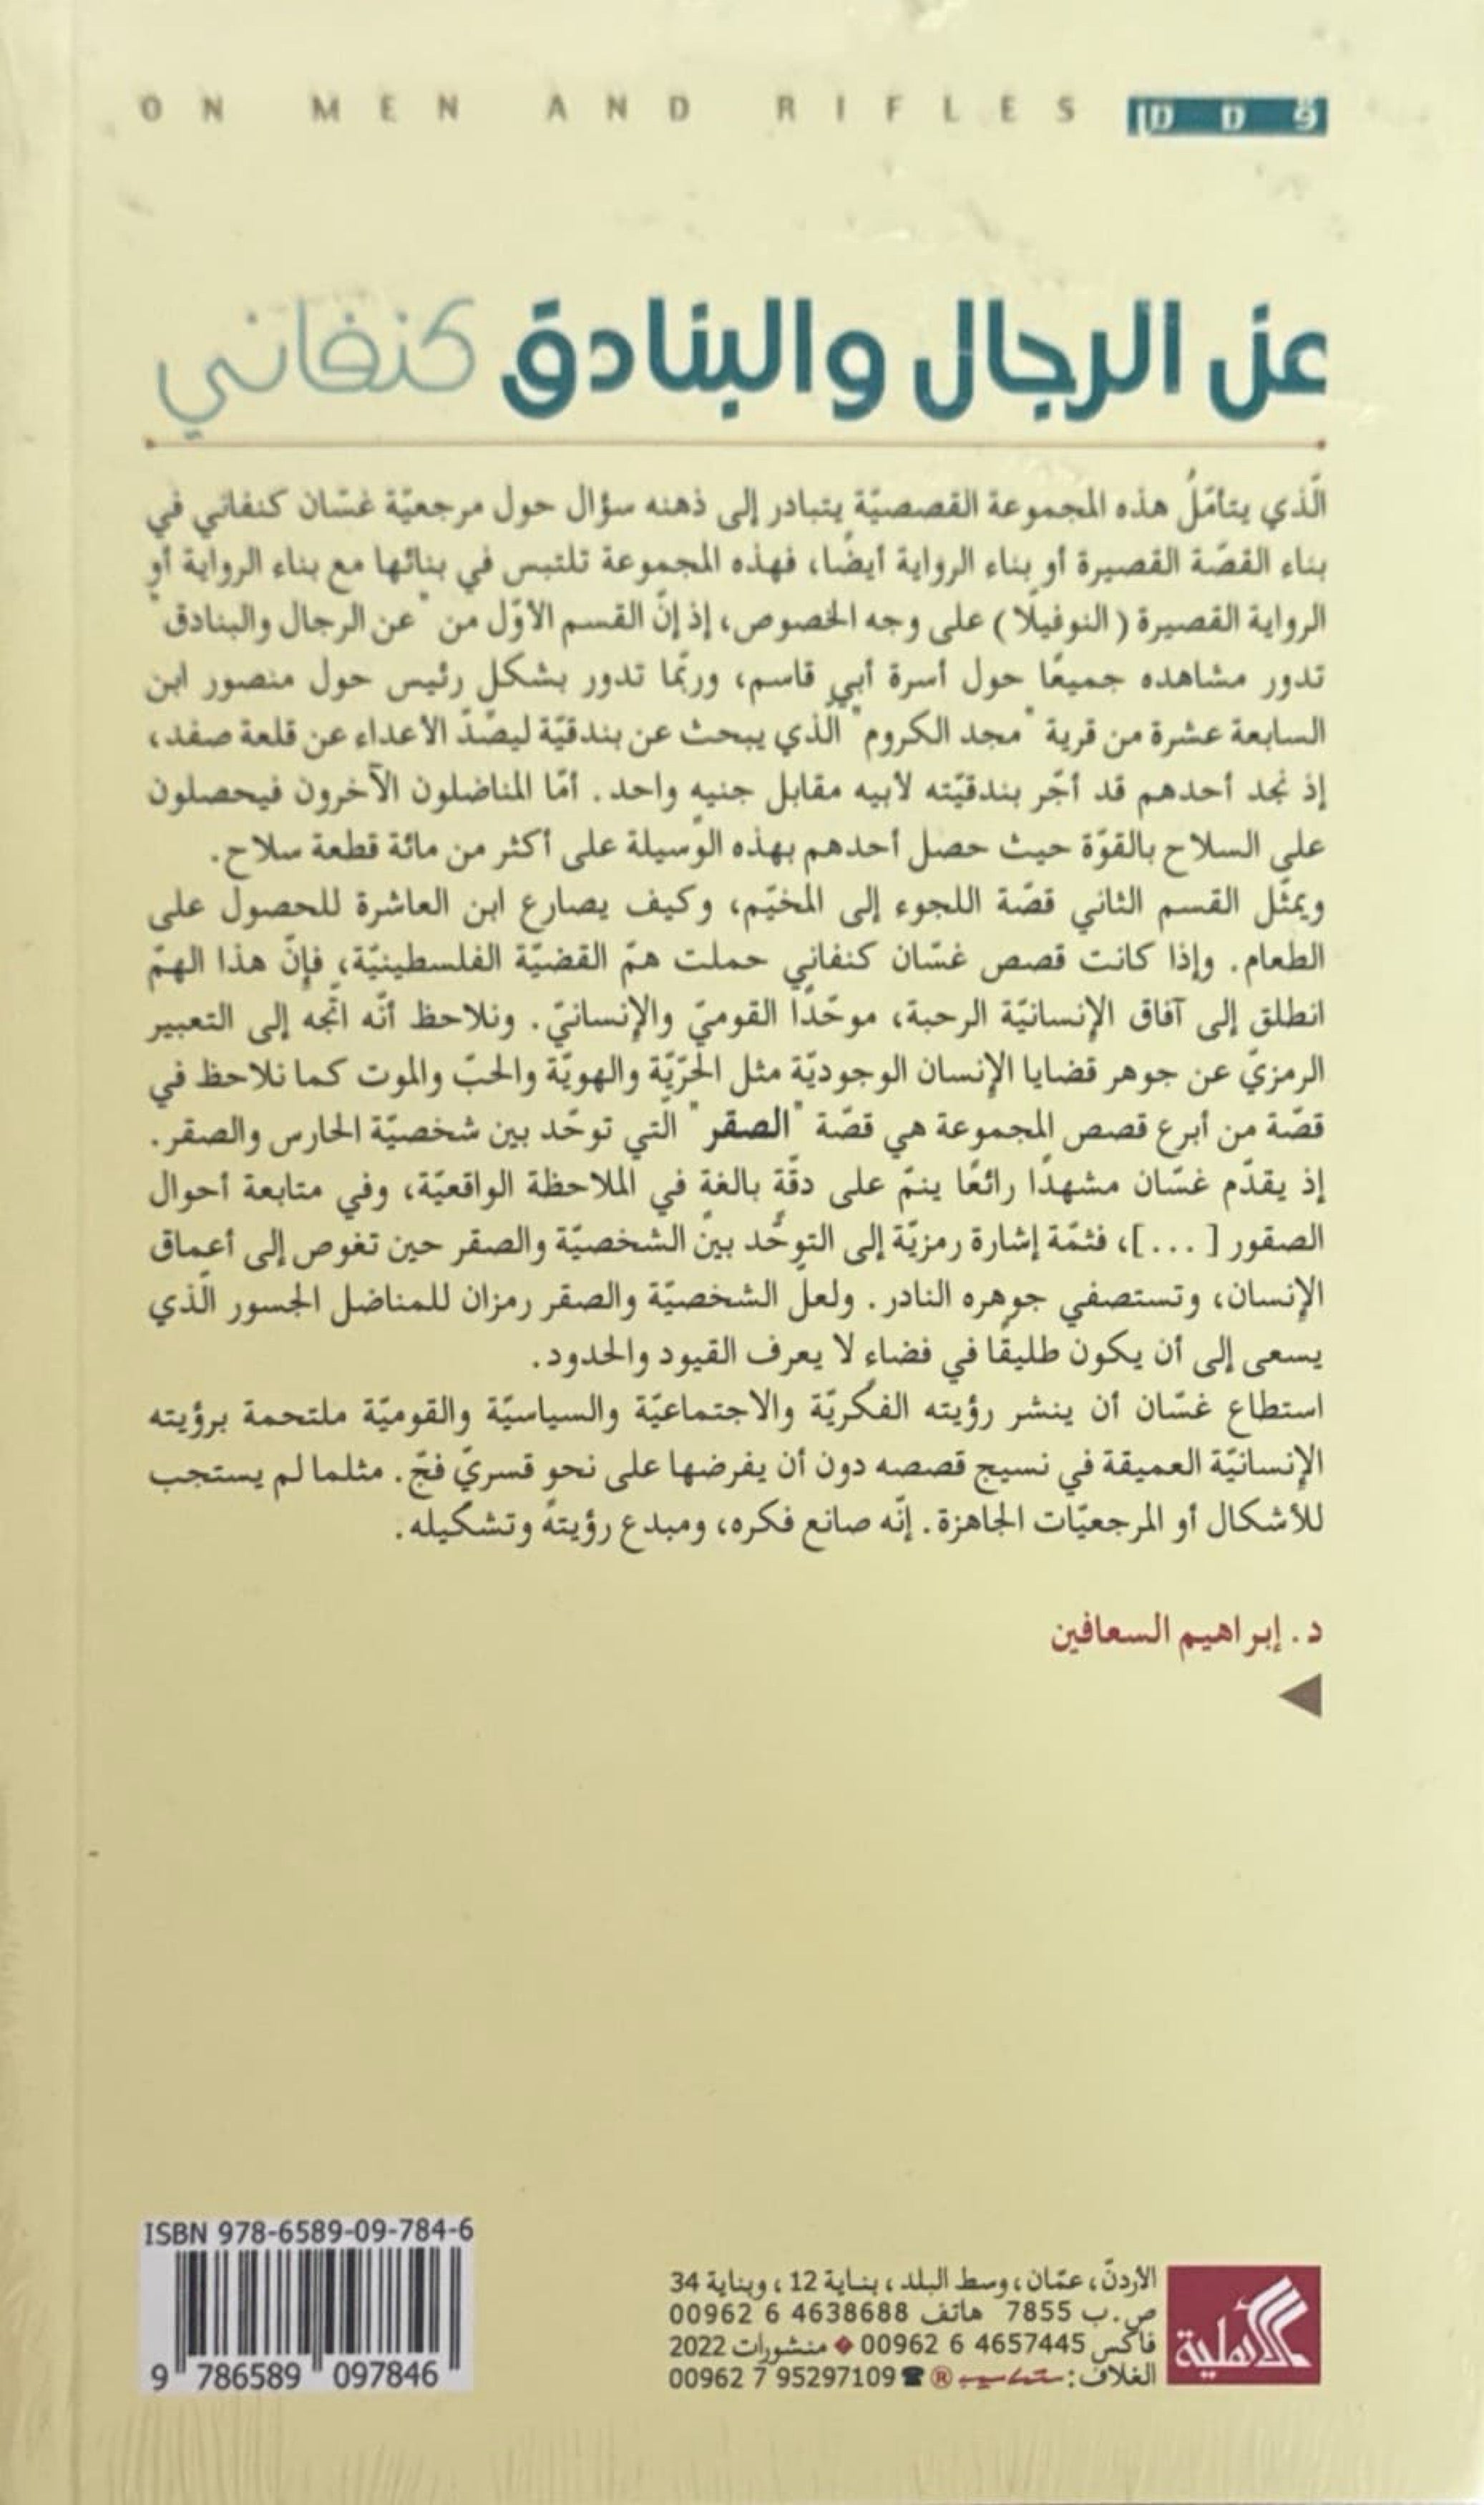 ON MEN AND RIFLES قصص
عن الرجال والبنادق كنفاني
الّذي يتأمّلُ هذه المجموعة القصصيّة يتبادر إلى ذهنه سؤال حول مرجعيّة غسّان كنفاني في
بناء القصّة القصيرة أو بناء الرواية أيضًا، فهذه المجموعة تلتبس في بنائها مع بناء الرواية أو
الرواية القصيرة (النوفيلّا) على وجه الخصوص، إذ إنّ القسم الأوّل من "عن الرجال والبنادق"
تدور مشاهده جميعًا حول أسرة أبي قاسم، وربّما تدور بشكل رئيس حول منصور ابن
السابعة عشرة من قرية "مجد الكروم" الّذي يبحث عن بندقيّة ليصّدّ الأعداء عن قلعة صفد،
إذ نجد أحدهم قد أجّر بندقيّته لأبيه مقابل جنيه واحد. أمّا المناضلون الآخرون فيحصلون
على السلاح بالقوّة حيث حصل أحدهم بهذه الوسيلة على أكثر من مائة قطعة سلاح.
ويمثّل القسم الثاني قصّة اللجوء إلى المخيّم، وكيف يصارع ابن العاشرة للحصول على
الطعام. وإذا كانت قصص غسّان كنفاني حملت همّ القضيّة الفلسطينيّة، فإنّ هذا الهمّ
انطلق إلى آفاق الإنسانيّة الرحبة، موحّدًا القوميّ والإنسانيّ. ونلاحظ أنّه اتّجه إلى التعبير
الرمزيّ عن جوهر قضايا الإنسان الوجوديّة مثل الحرّيّة والهويّة والحبّ والموت كما نلاحظ في
قصّة من أبرع قصص المجموعة هي قصّة "الصقر" الّتي توحّد بين شخصيّة الحارس والصقر.
إذ يقدّم غسّان مشهدًا رائعًا ينمّ على دقّةٍ بالغةٍ في الملاحظة الواقعيّة، وفي متابعة أحوال
الصقور [...]، فثمّة إشارة رمزيّة إلى التوحُّد بين الشخصيّة والصقر حين تغوص إلى أعماق
الإنسان، وتستصفي جوهره النادر. ولعلّ الشخصيّة والصقر رمزان للمناضل الجسور الّذي
يسعى إلى أن يكون طليقًا في فضاء لا يعرف القيود والحدود.
استطاع غسّان أن ينشر رؤيته الفكريّة والاجتماعيّة والسياسيّة والقوميّة ملتحمة برؤيته
الإنسانيّة العميقة في نسيج قصصه دون أن يفرضها على نحو قسريّ فجّ. مثلما لم يستجب
للأشكال أو المرجعيّات الجاهزة. إنّه صانع فكره، ومبدع رؤيته وتشكيله.
د. إبراهيم السعافين
ISBN 978-6589-09-784-6
9 786589 097846
الأهلية
الأردنّ، عمّان، وسط البلد، بناية 12، وبناية 34
ص.ب 7855 هاتف 00962 6 4638688
فاكس 00962 6 4657445 ♦ منشورات 2022
الغلاف: ® ☎ 00962 7 95297109